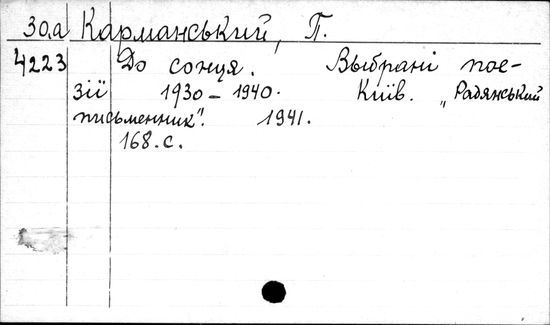 30,а Карманський, П.
4223 До сонця. Выбрані пое-
зії 1930 - 1940. Київ. „Радянський
письменник". 1941.
168. с.